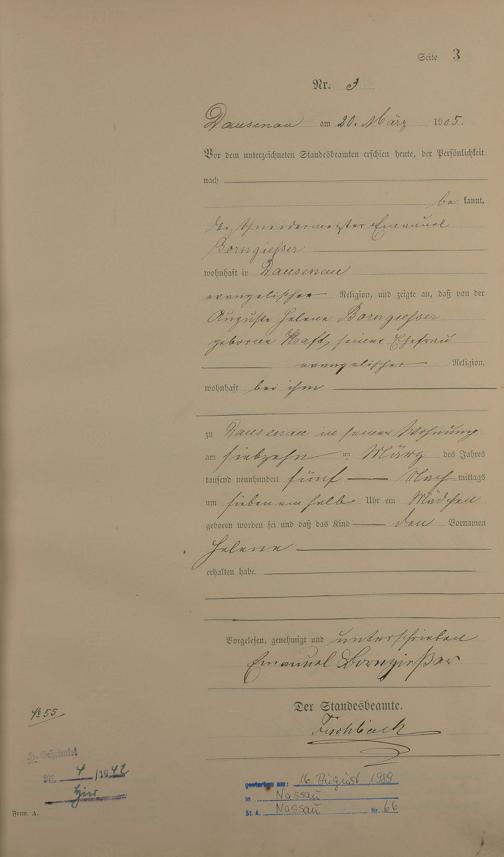 Seite 3
Nr. 3
Dausenau am 20. März 1905.
Vor dem unterzeichneten Standesbeamten erschien heute, der Persönlichkeit
nach
be kannt,
der Schneidermeister Emanuel
Borngiesser
wohnhaft in Dausenau
evangelischer Religion, und zeigte an, daß von der
Auguste Helene Borngiesser
geborne seiner Ehefrau
evangelischer Religion,
wohnhaft bei ihm
zu Dausenau in seiner Wohnung
am siebzehn ten März des Jahres
tausend neunhundert fünf Nach mittags
um sieben ein halb Uhr ein Mädchen
geboren worden sei und daß das Kind den Vornamen
Helene
erhalten habe.
Vorgelesen, genehmigt und unterschrieben
Emanuel Borngießer
Der Standesbeamte.
Fischbach
№ 55
4/1942
gestorben am: 16. August 1989
in Nassau
St. A. Nassau Nr. 66
Form A.